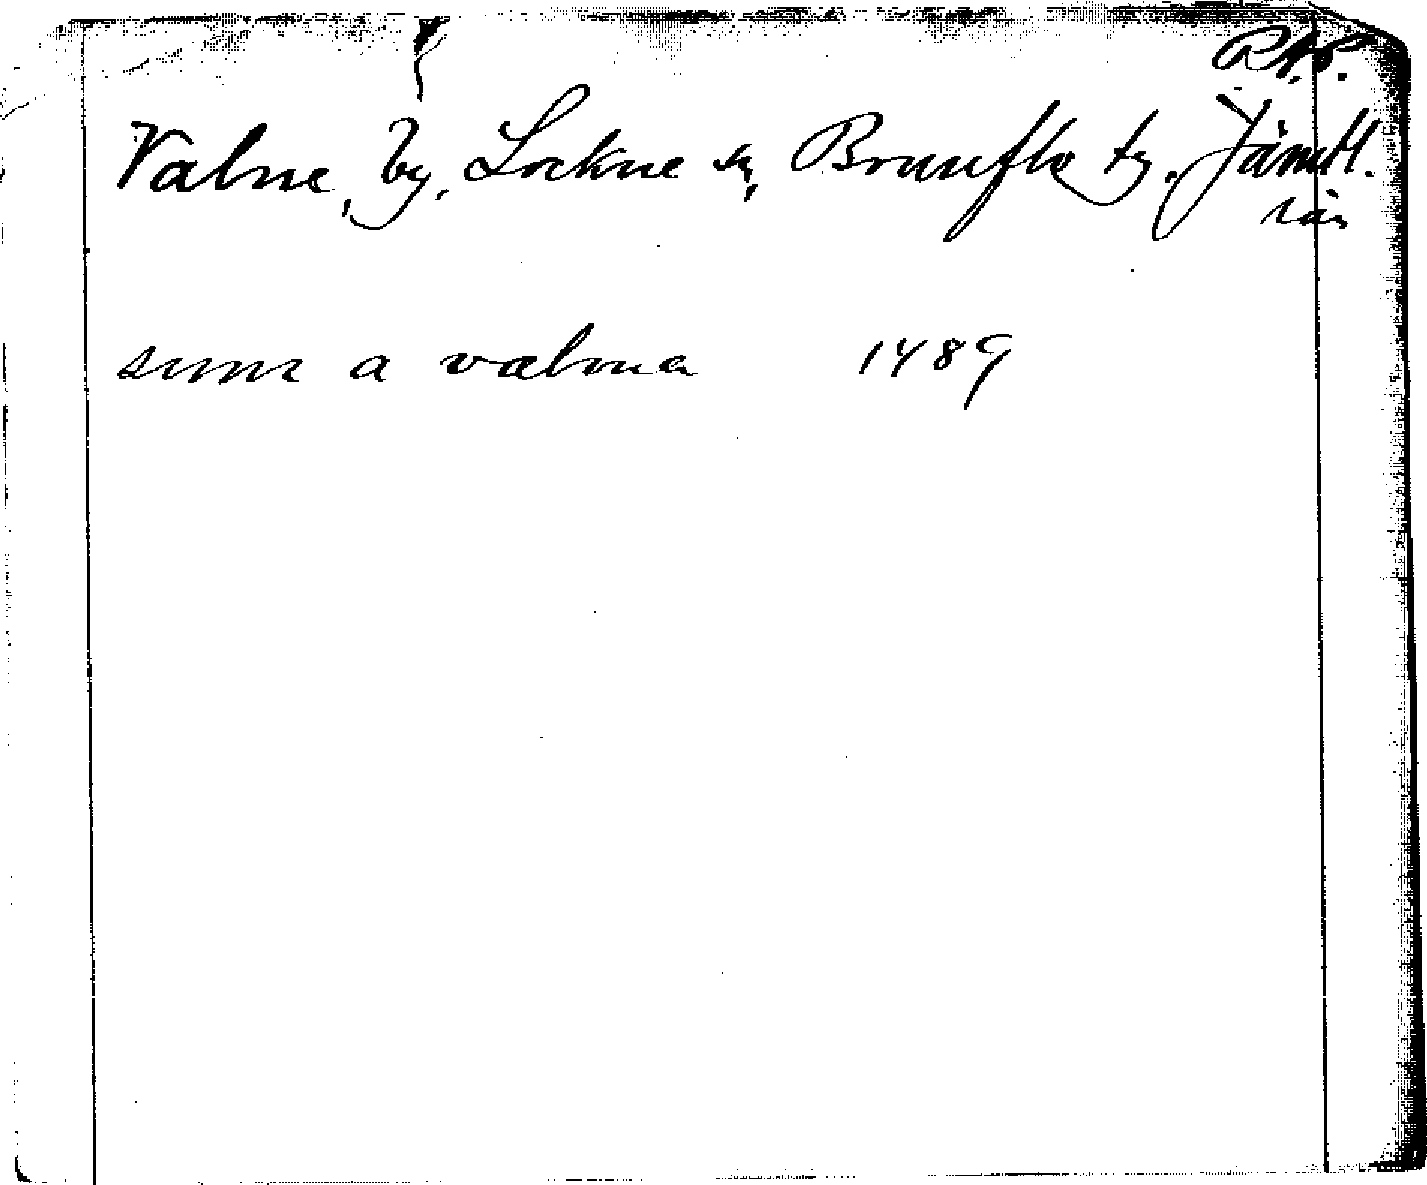 Valne, by, Lockne sn, Brunflo tg. Jämtl.
län
sunr a valnna 1489